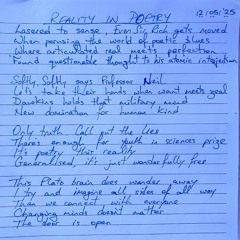 REALITY IN POETRY
12/05/25
Lasered to sense, Even Sir Rich gets moved
When perusing the world of poetic blues
Where articulated real meets perfection
Found questionable thought to his atomic
Softly, Softly says Professor Neil
Lets take their hands when want meets zeal
Dawkins holds that military mind
New domination for human kind
Only truth Call out the lies
There's enough for youth + sciences prize
It's poetry this reality
Generalised, it's just wonderfully free
This Plato brain does wander away
I try and imagine all sides of all way
Then we connect with everyone
Changing minds doesn't matter
The door is open